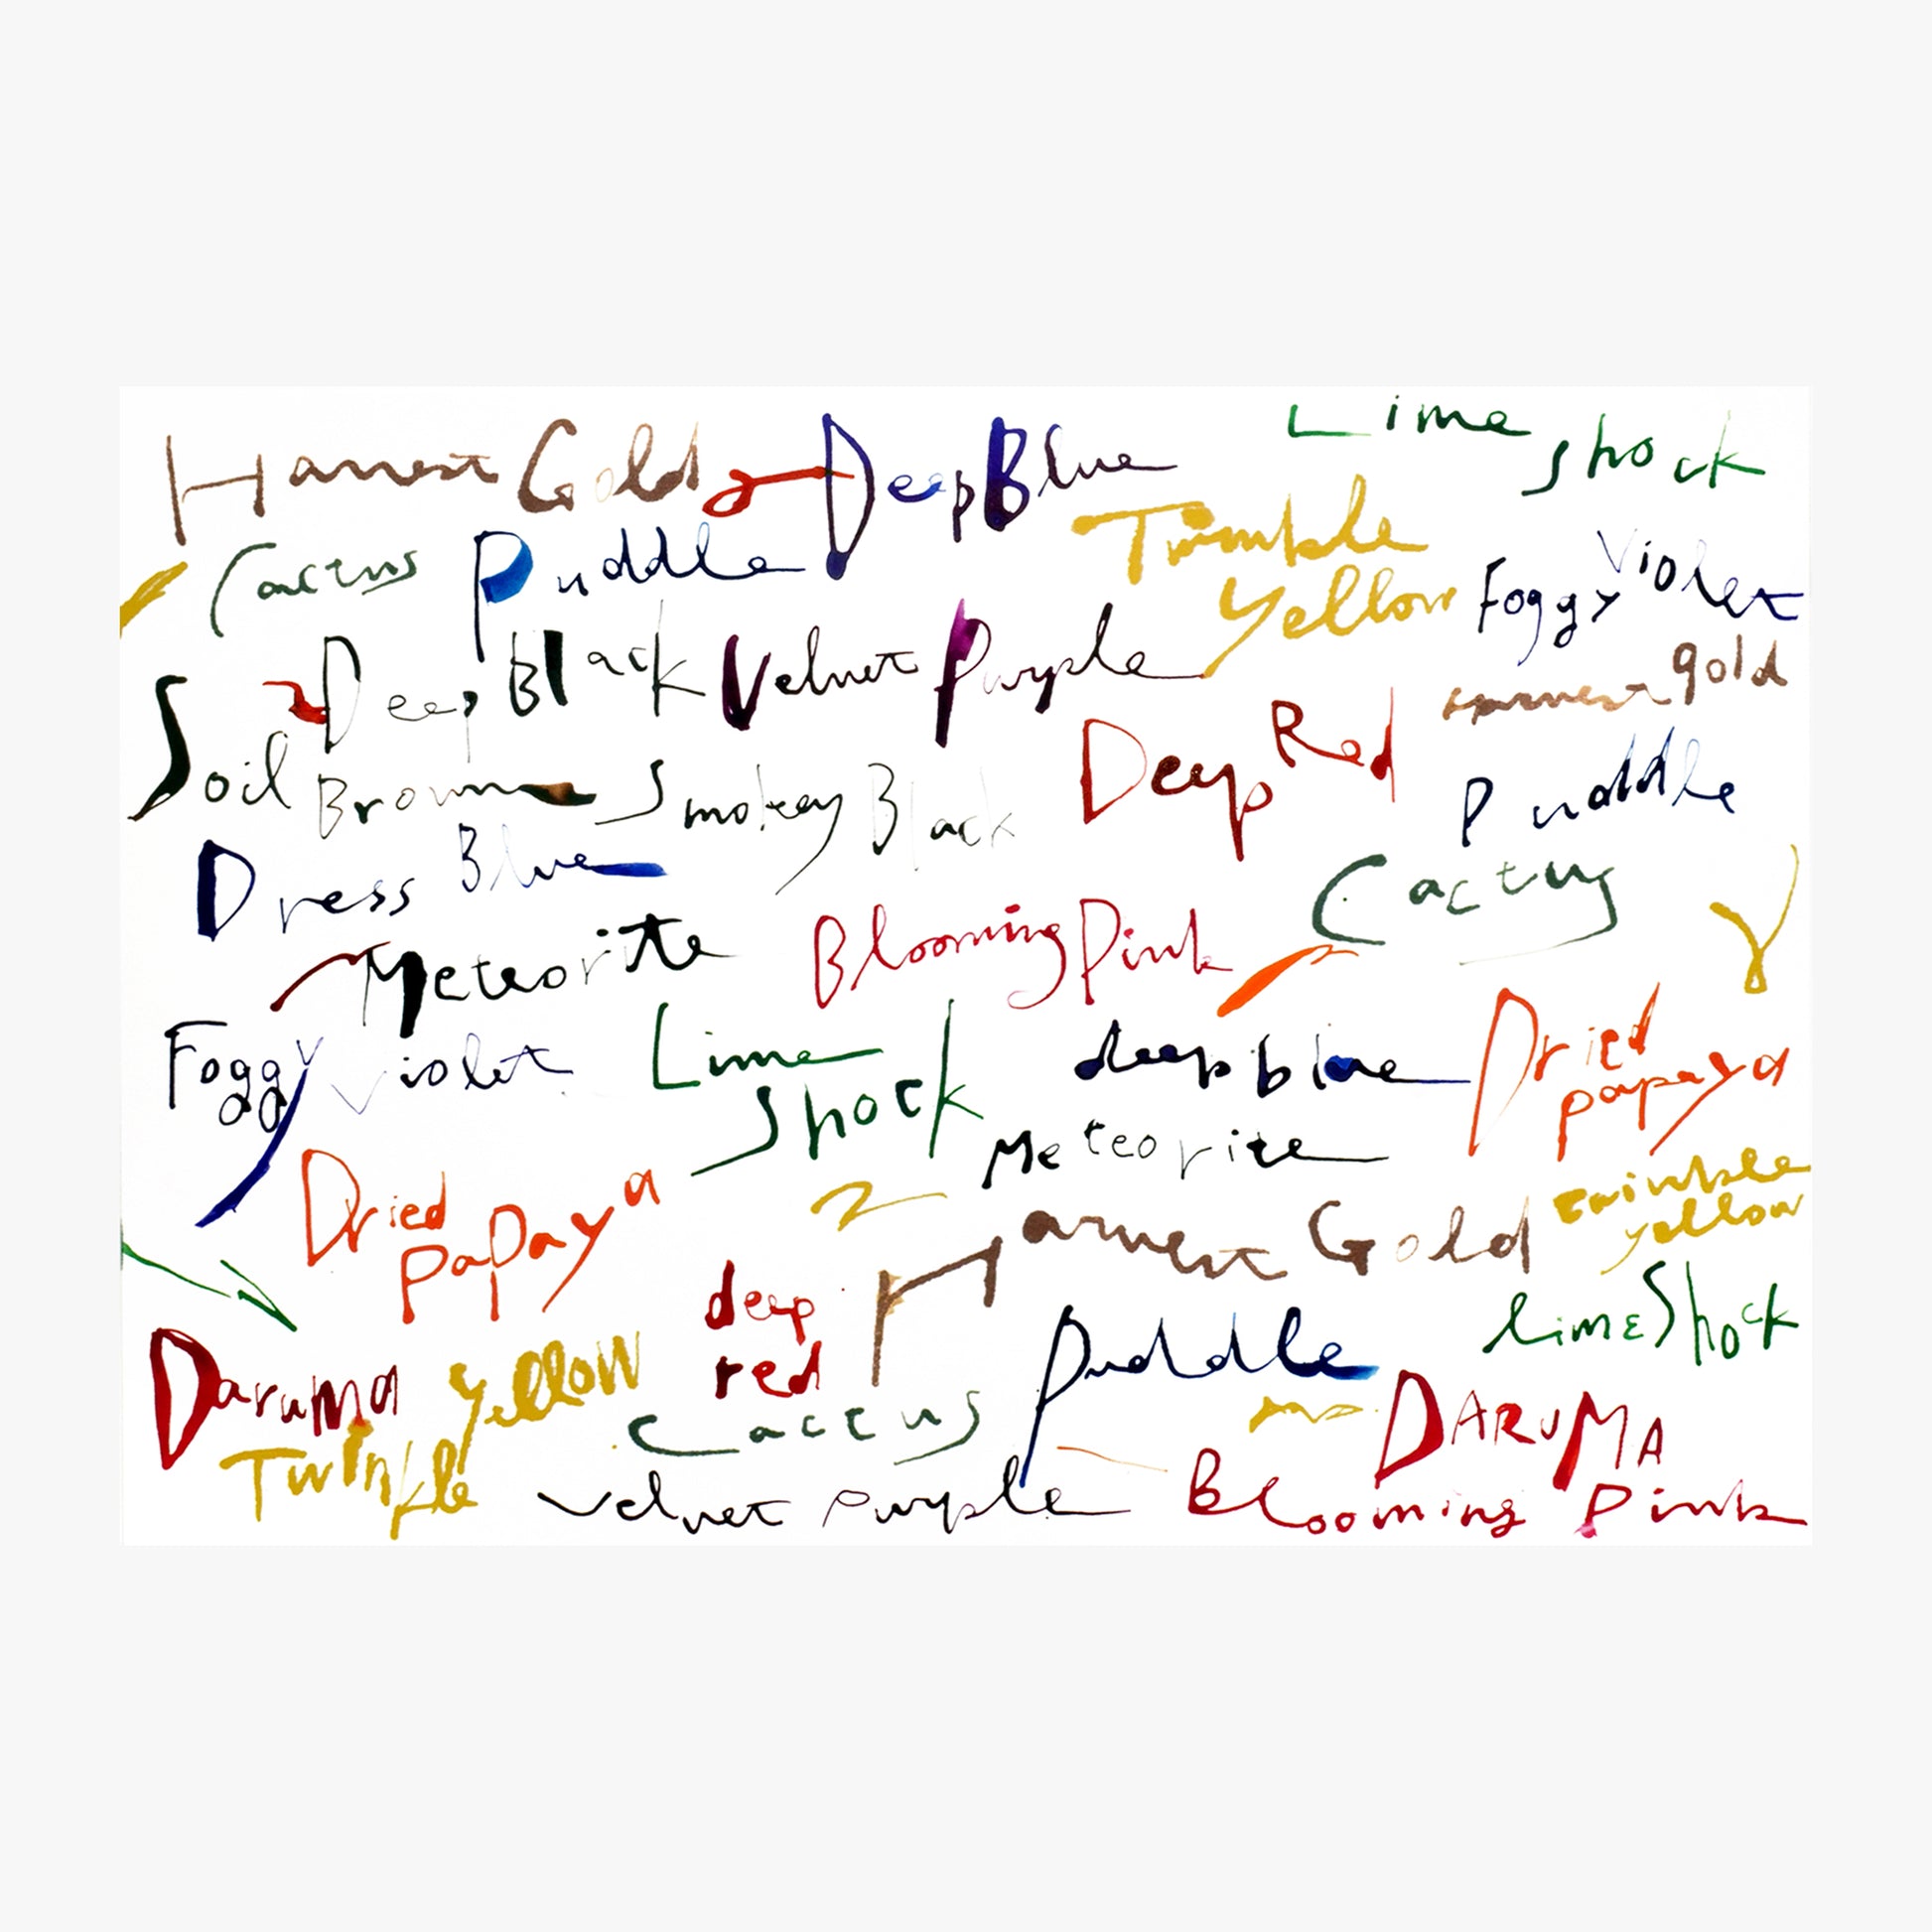 Harvest Gold Deep Blue
Lime Shock
Cactus Puddle
Twinkle
Yellow
Foggy Violet
Deep Black Velvet Purple
Harvest gold
Soil Brown Smokey Black
Deep Red
Puddle
Dress Blue
Cactus
Meteorite Blooming Pink
Foggy Violet
Lime
Shock
deep blue
Dried
papaya
Meteorite
Dried
Papaya
Harvest Gold
twinkle
yellow
deep
red
Puddle
lime Shock
Daruma
Yellow
Twinkle
Cactus
DARUMA
Velvet Purple
Blooming Pink